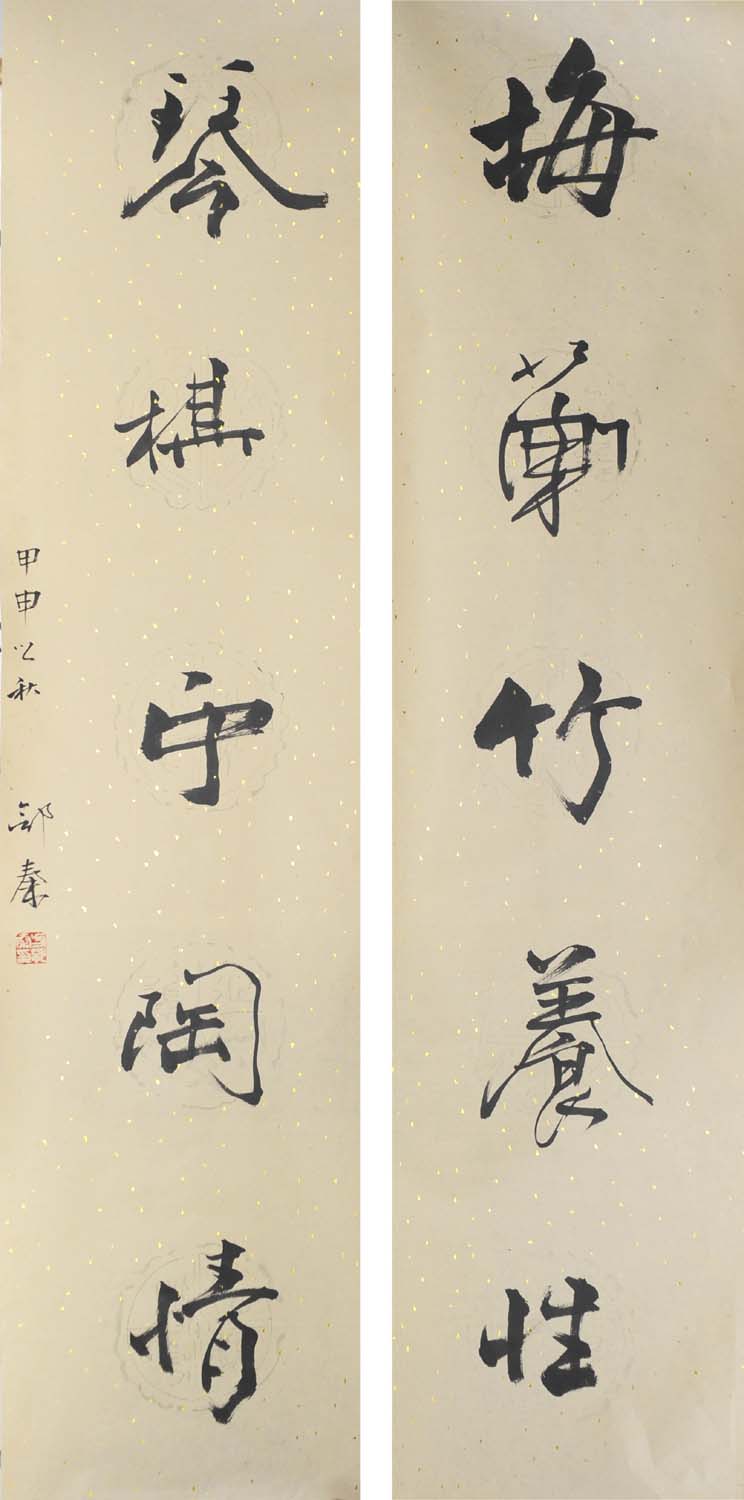 梅蘭竹養性
琴棋陶情
甲申之秋
秦